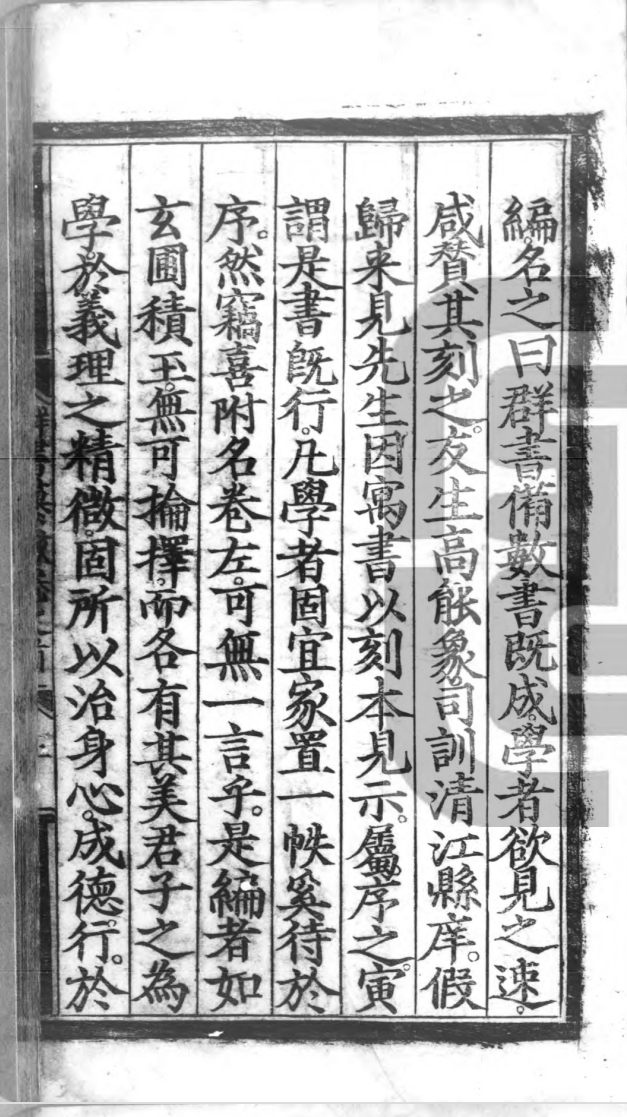 編。名之曰群書備數。書既成。學者欲見之速。
咸贊其刻之。友生高能象司訓清江縣庠。假
歸来見先生。因寓書以刻本見示。屬序之。寅
謂是書既行。凡學者固宜家置一帙。奚待於
序。然竊喜附名卷左。可無一言乎。是編者如
玄圃積玉。無可掄擇。而各有其美。君子之為
學。於義理之精微。固所以治身心。成德行。於